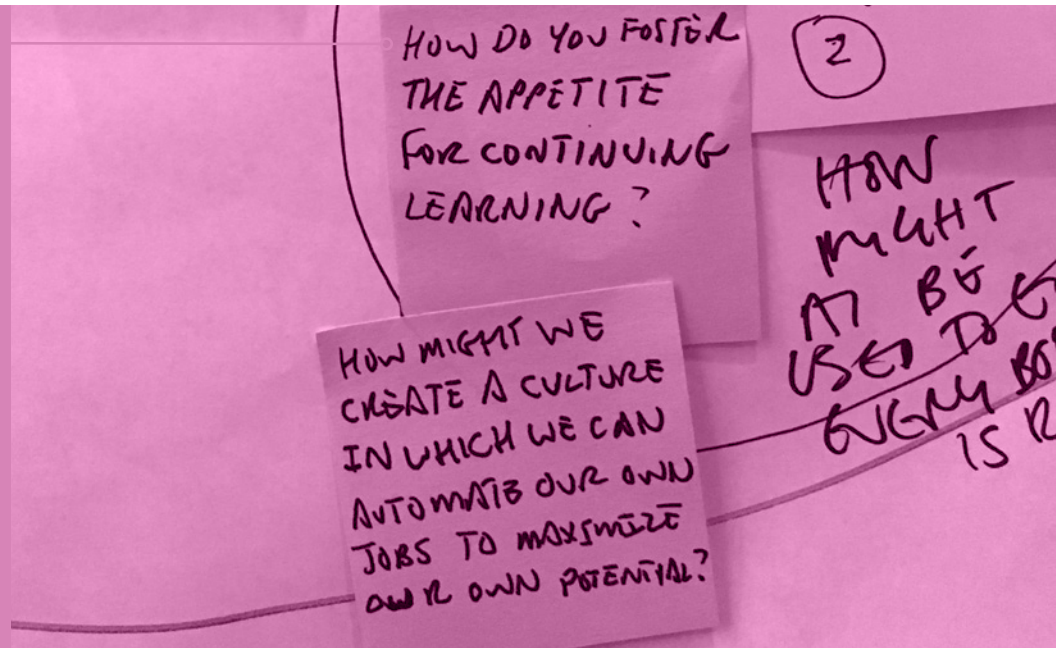 HOW DO YOU FOSTER
THE APPETITE
FOR CONTINUING
LEARNING?
2
HOW
MIGHT
AI BE
USED TO
EVERY
IS
HOW MIGHT WE
CREATE A CULTURE
IN WHICH WE CAN
AUTOMATE OUR OWN
JOBS TO MAXIMIZE
OUR OWN POTENTIAL?